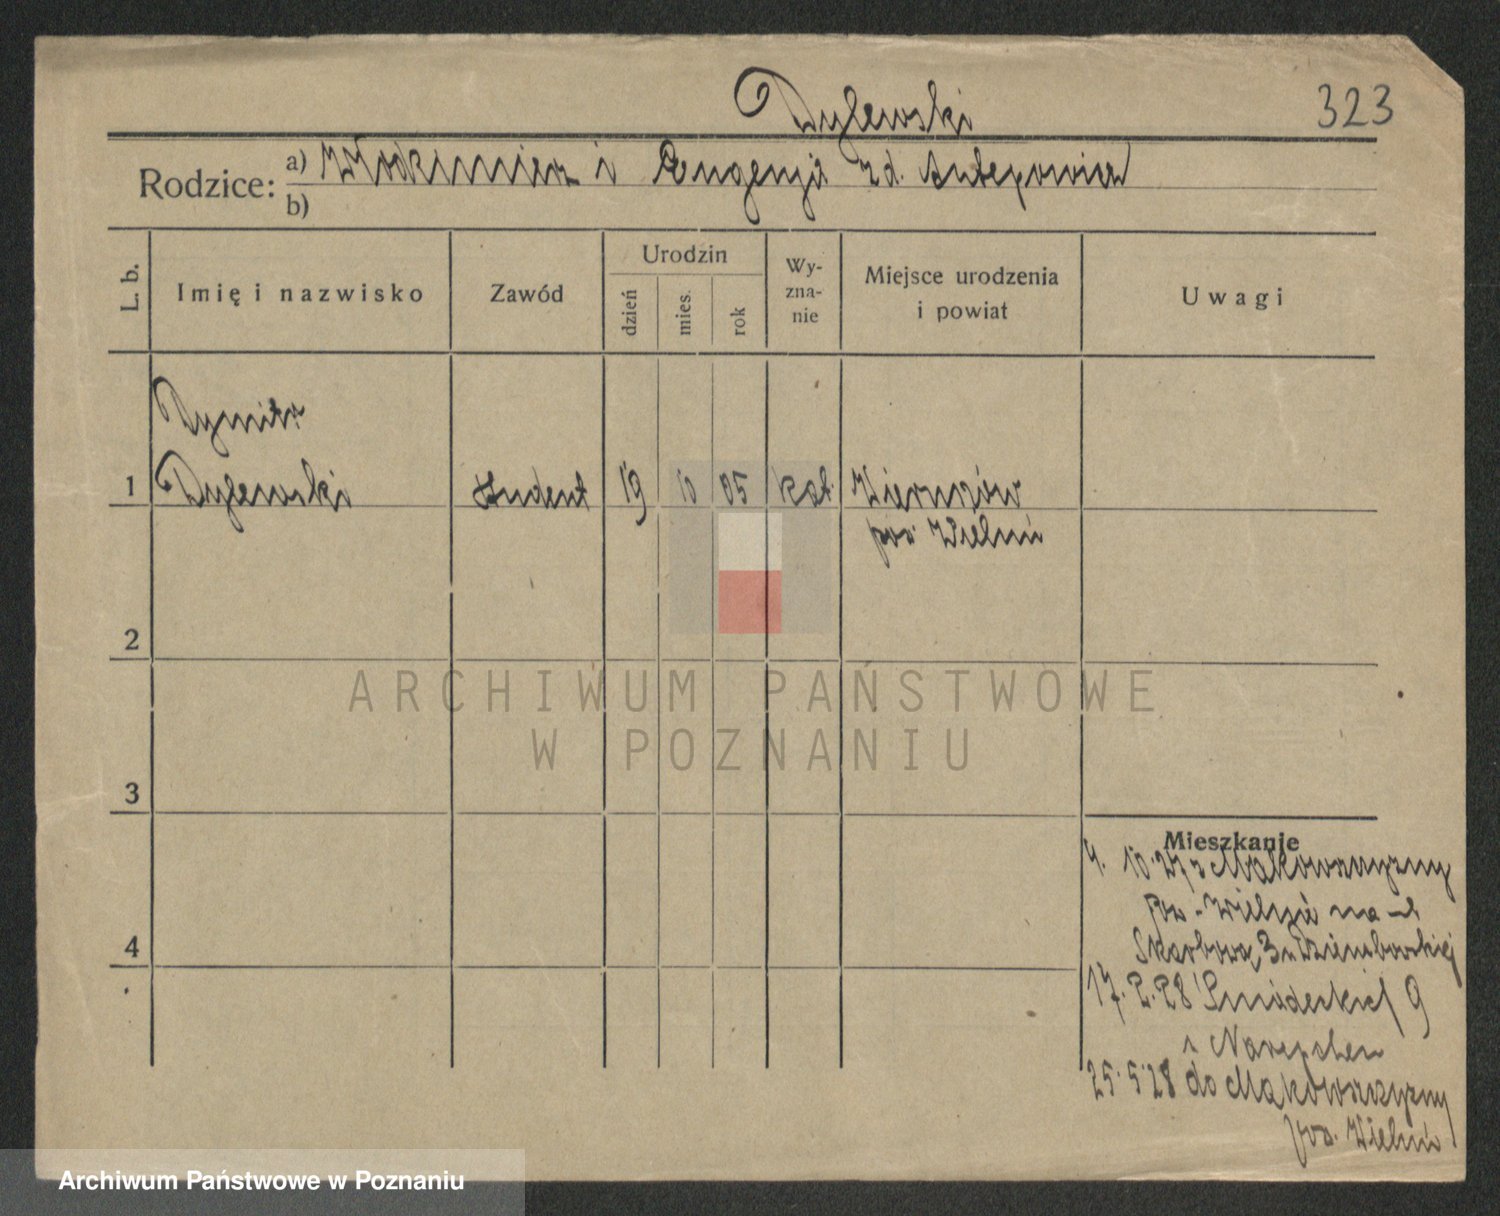 Dylewski
323
Rodzice: a) Włodzimierz i Eugenja zd. Antepowicz
b)
L. b.
Imię i nazwisko
Zawód
Urodzin
dzień
mies.
rok
Wy-
zna-
nie
Miejsce urodzenia
i powiat
Uwagi
Dymitr
1 Dylewski student 19 10 05 kat. Wieruszów
pow. Wieluń
2
3
4
Mieszkanie
4. 10.27 z Makowszczyzny
pow. Wieluń na
Skarbowa 3 u Dziembowskiej
17. 2. 28 Śniadeckich 9
u
25.5.28 do Makowszczyzny
pow. Wieluń
ARCHIWUM PAŃSTWOWE
W POZNANIU
Archiwum Państwowe w Poznaniu